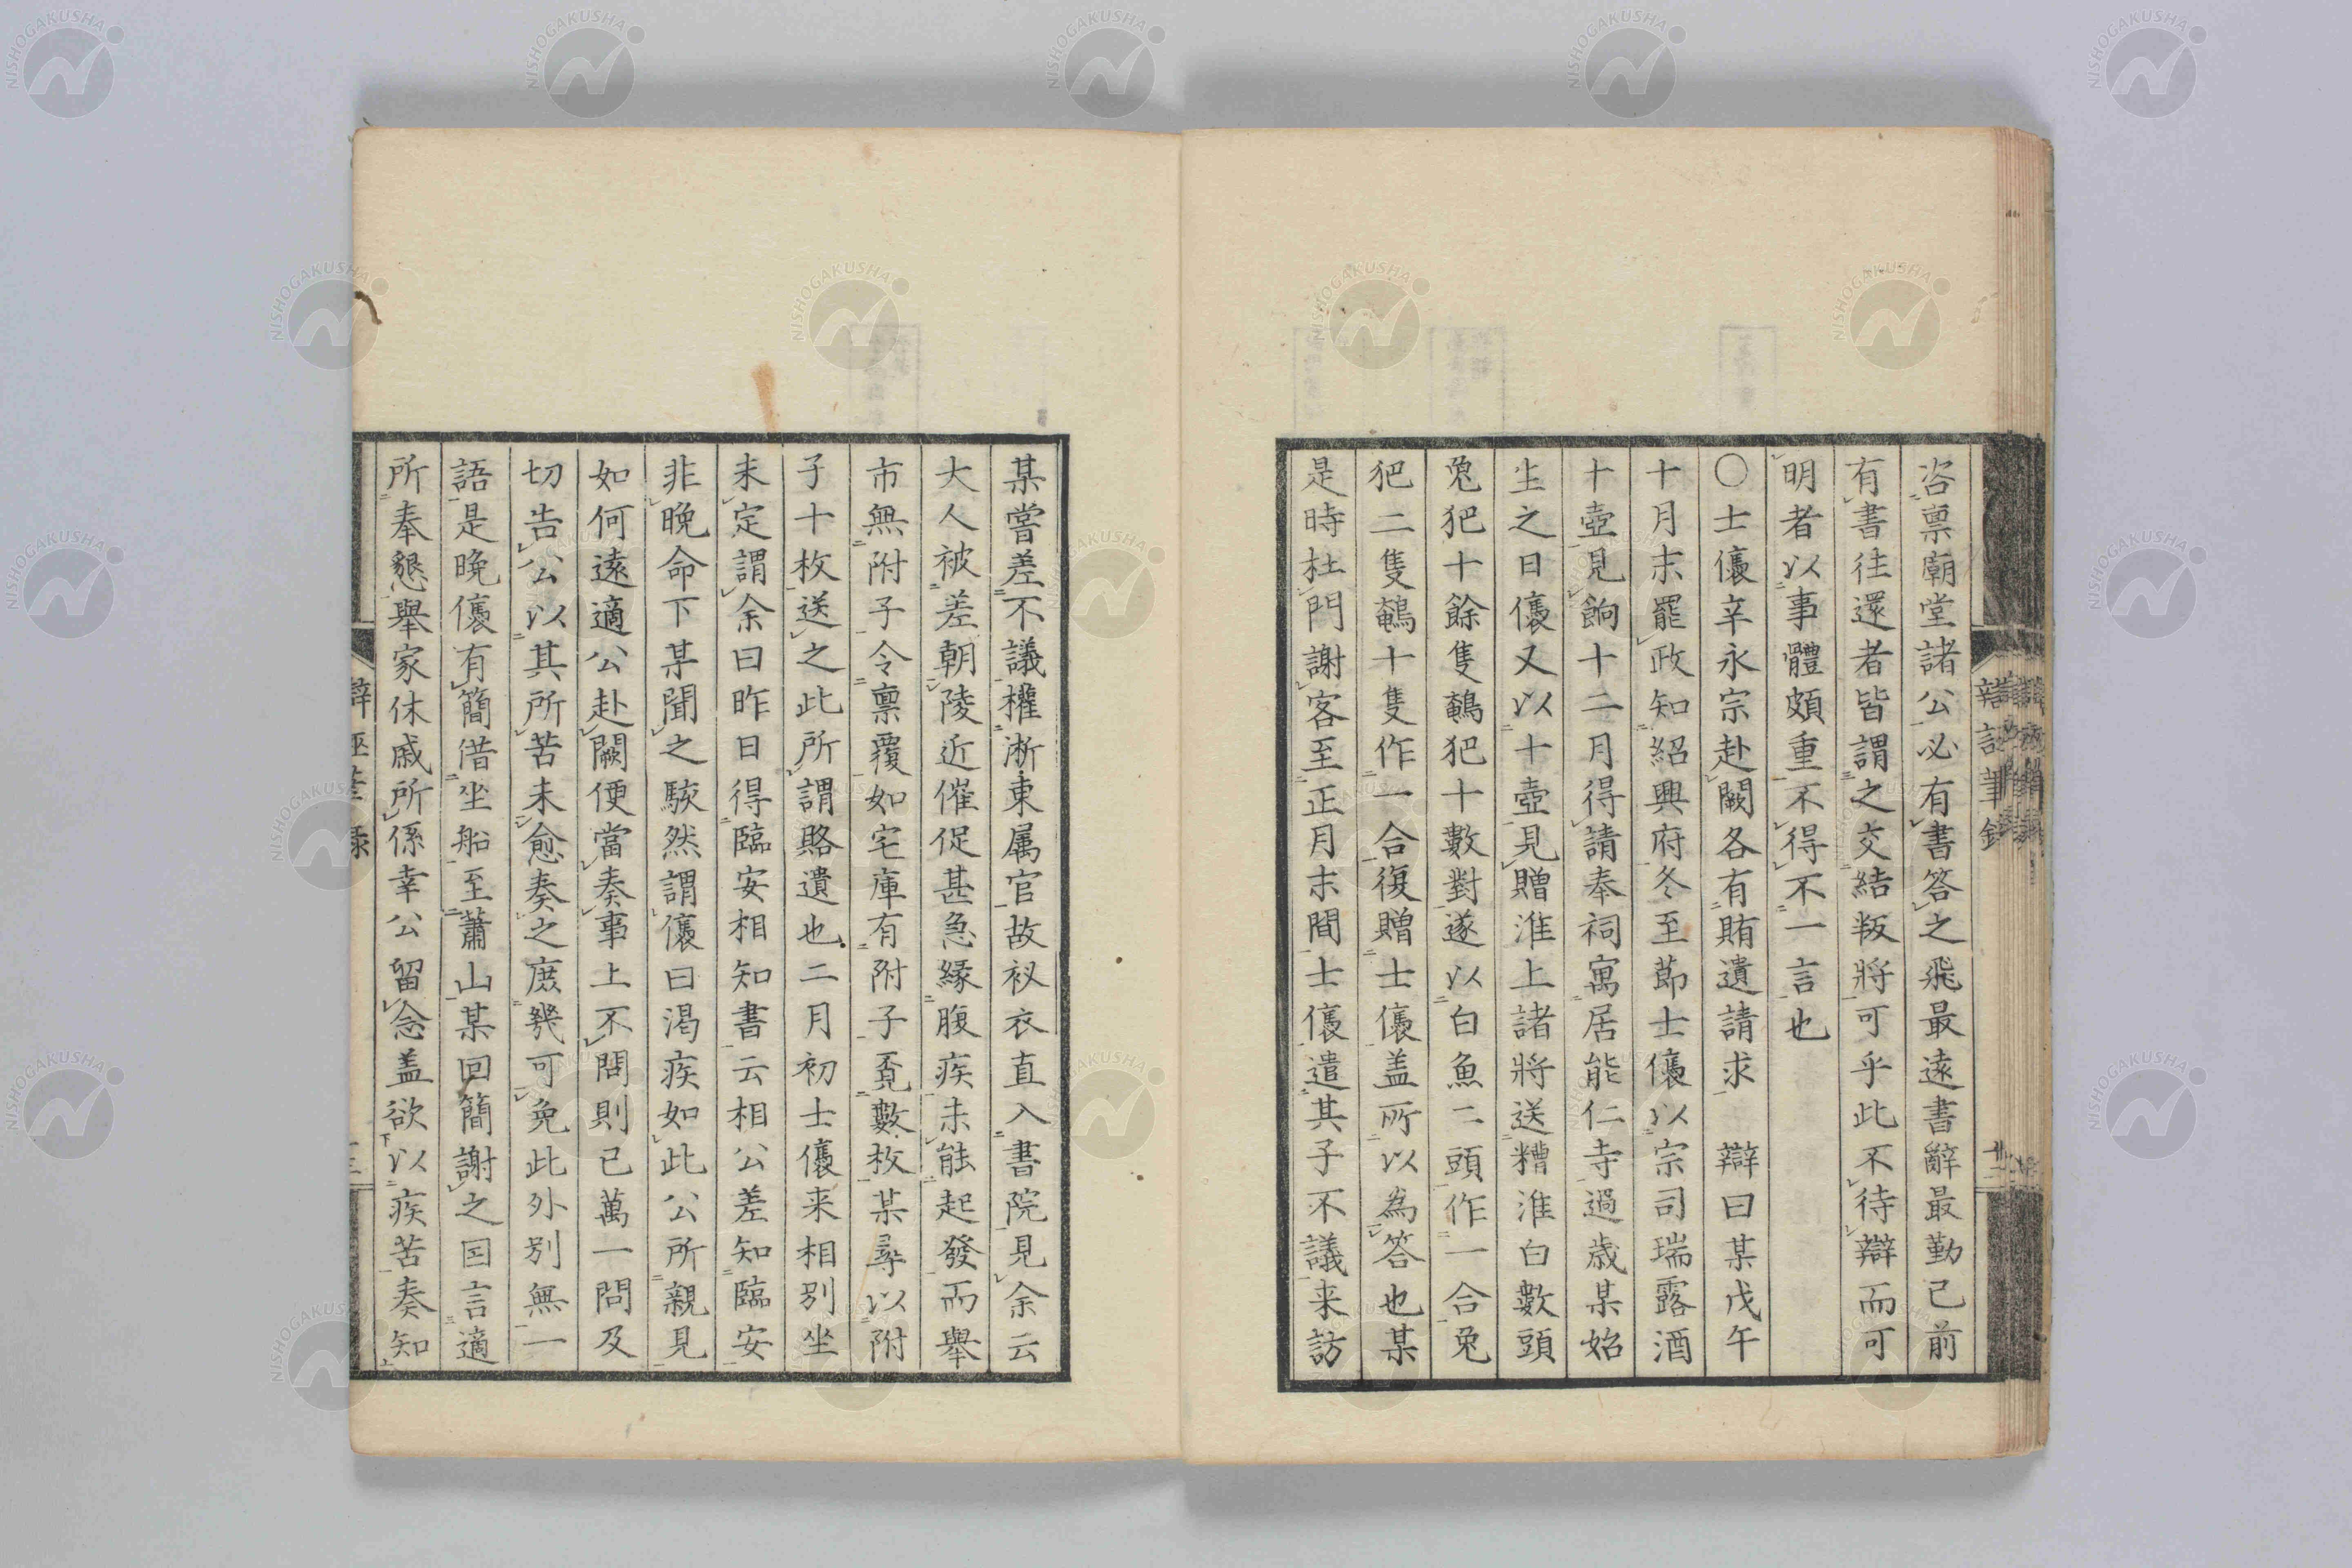 咨禀廟堂諸公必有書答之飛最遠書辭最勤已前
有書往還者皆謂之交結叛將可乎此不待辯而可
明者以事體頗重不得不一言也
〇士㒟辛永宗赴闕各有賄遺請求　辯曰某戊午
十月末罷政知紹興府冬至莭士㒟以宗司瑞露酒
十壺見餉十二月得請奉祠寓居能仁寺過歳某始
生之日㒟又以十壺見贈淮上諸將送糟淮白數頭
兔䶕十餘隻鵪䶕十數對遂以白魚二頭作一合兔
䶕二隻鵪十隻作一合復贈士㒟盖所以為答也某
是時杜門謝客至正月末間士㒟遣其子不議来訪
某嘗差不議權淅東属官故衩衣直入書院見余云
大人被差朝陵近催促甚急縁腹疾未能起發而舉
市無附子令禀覆如宅庫有附子覔數枚某尋以附
子十枚送之此所謂賂遺也二月初士㒟来相別坐
未定謂余曰昨日得臨安相知書云相公差知臨安
非晚命下某聞之駭然謂㒟曰渇疾如此公所親見
如何遠適公赴闕便當奏事上不問則已萬一問及
切告公以其所苦未愈奏之庶幾可免此外别無一
語是晚㒟有簡借坐船至蕭山某回簡謝之因言適
所奉懇舉家休戚所係幸公留念盖欲以疾苦奏知